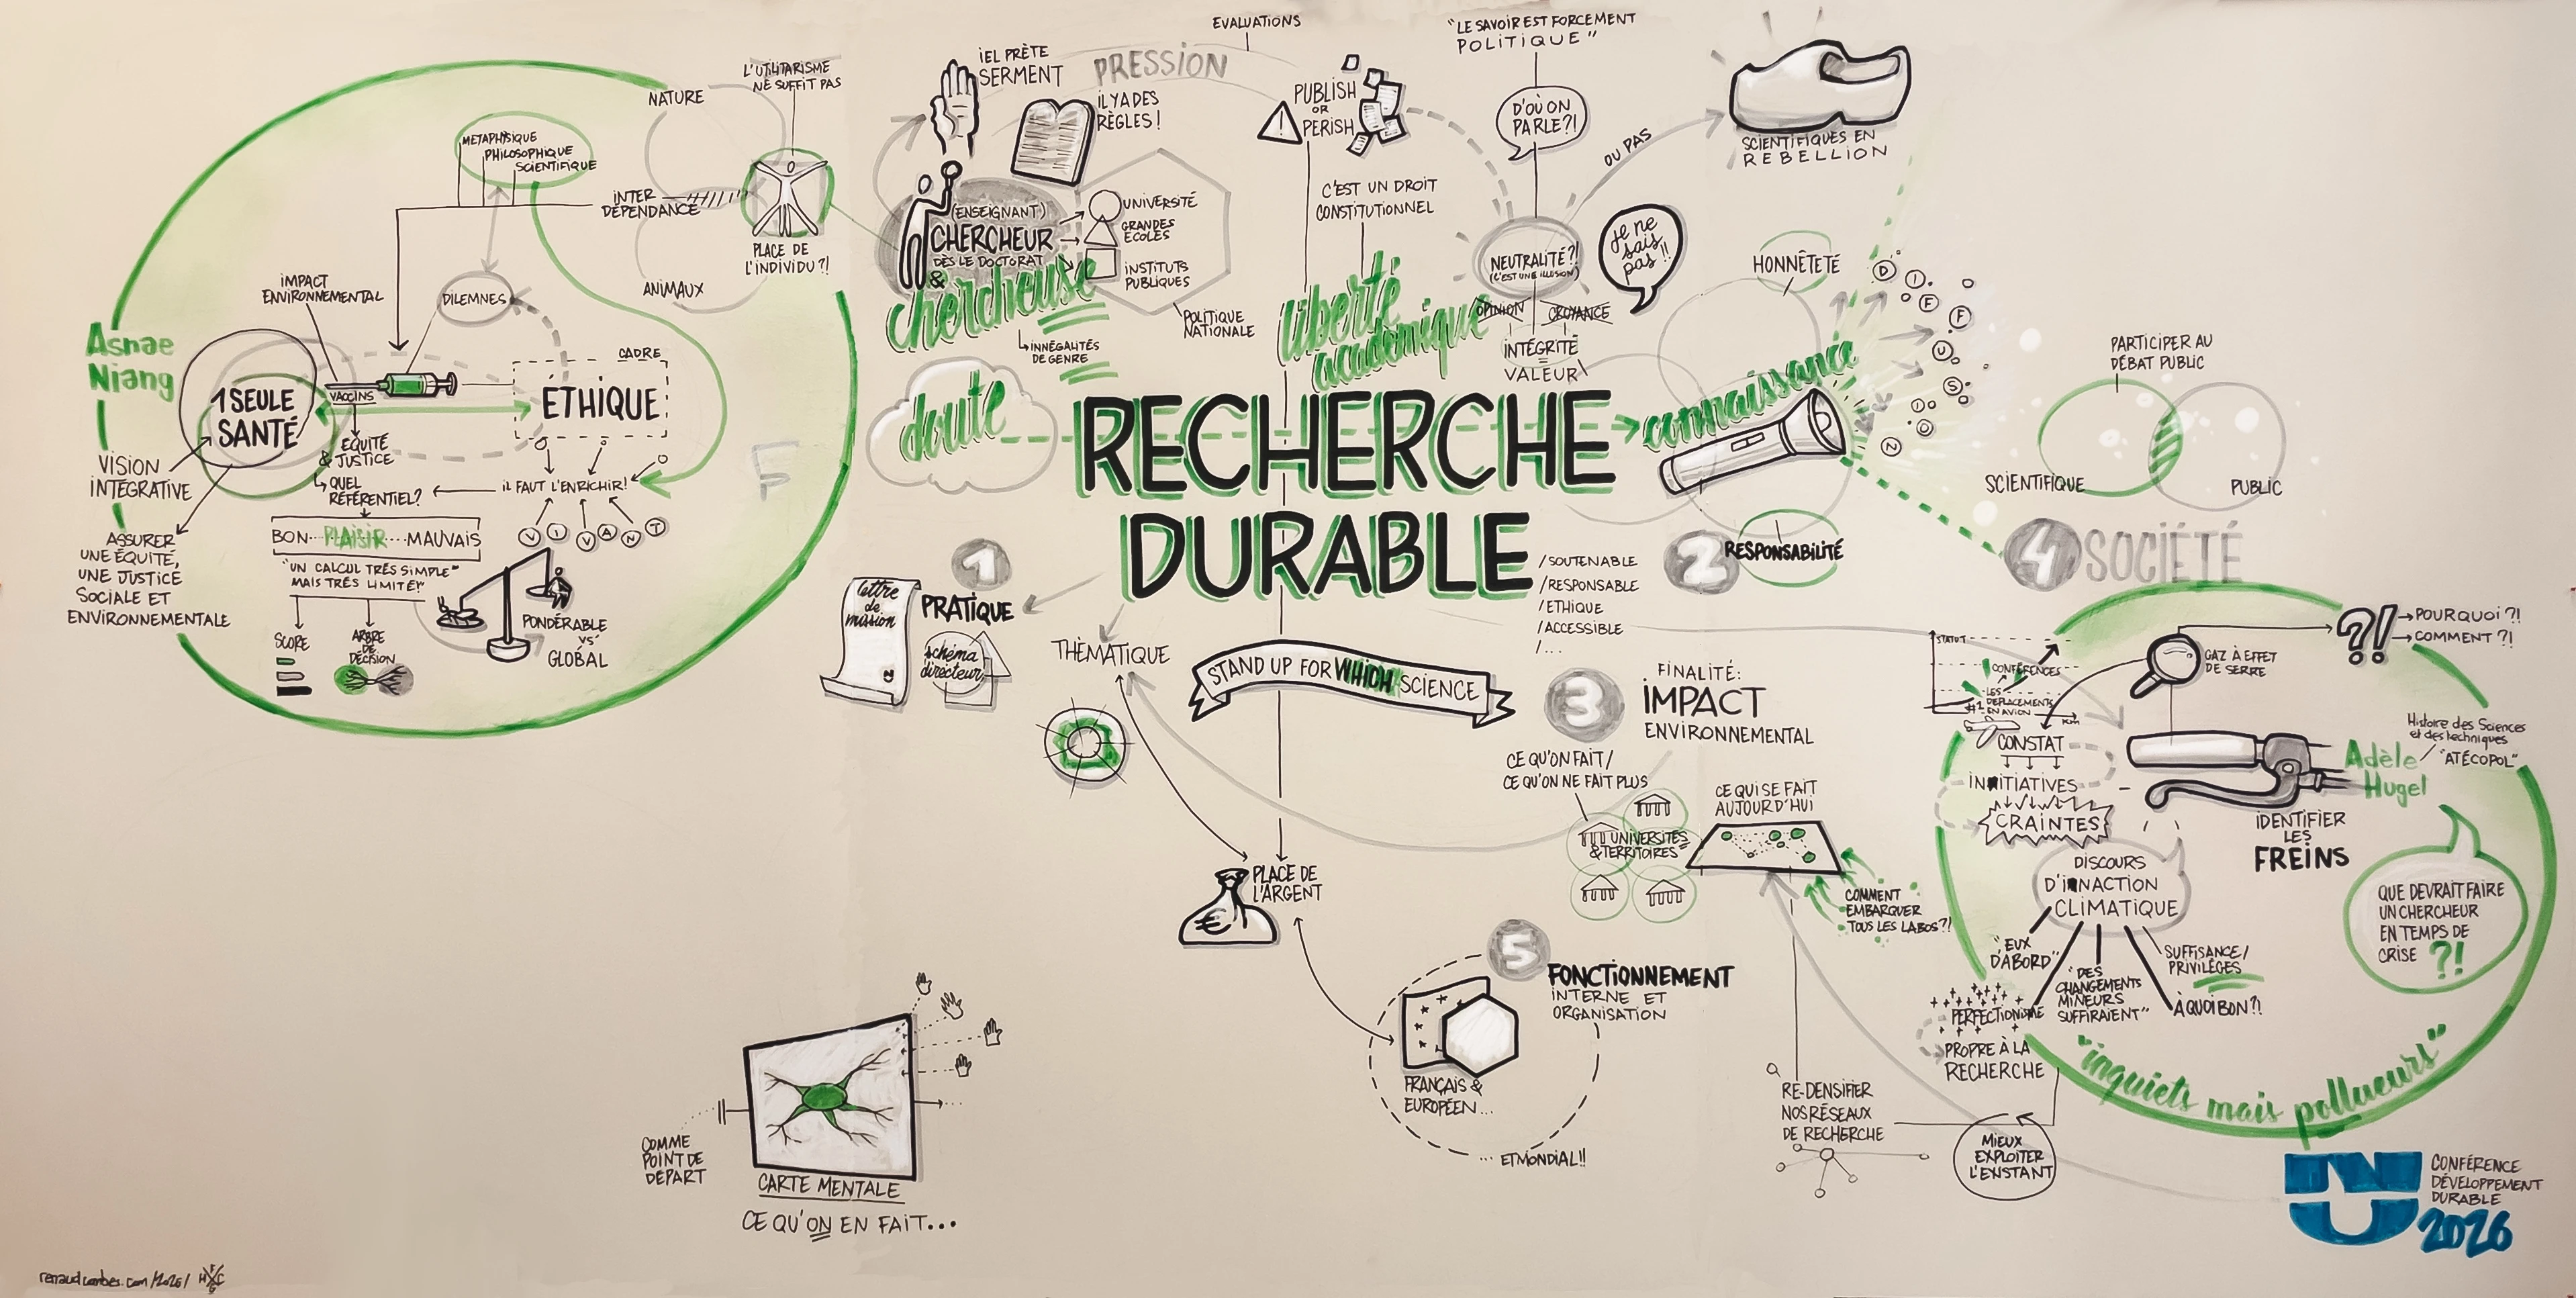 Asnae
Niang
1 SEULE
SANTÉ
VISION
INTÉGRATIVE
ASSURER
UNE ÉQUITÉ,
UNE JUSTICE
SOCIALE ET
ENVIRONNEMENTALE
IMPACT
ENVIRONNEMENTAL
VACCINS
ÉQUITÉ
& JUSTICE
QUEL
RÉFÉRENTIEL?
BON...PLAISIR...MAUVAIS
"UN CALCUL TRÈS SIMPLE"
MAIS TRÈS LIMITÉ!"
SCORE
ARBRE
DE
DÉCISION
METAPHYSIQUE
PHILOSOPHIQUE
SCIENTIFIQUE
DILEMNES
CADRE
ÉTHIQUE
IL FAUT L'ENRICHIR!
VIVANT
PONDÉRABLE
VS
GLOBAL
NATURE
INTER
DÉPENDANCE
ANIMAUX
L'UTILITARISME
NE SUFFIT PAS
PLACE DE
L'INDIVIDU?!
F
IEL PRÈTE
SERMENT
IL Y A DES
RÈGLES!
PRESSION
EVALUATIONS
(ENSEIGNANT)
CHERCHEUR
DÈS LE DOCTORAT
&
chercheuse
INNÉGALITÉS
DE GENRE
UNIVERSITÉ
GRANDES
ÉCOLES
INSTITUTS
PUBLIQUES
POLITIQUE
NATIONALE
PUBLISH
OR
PERISH
C'EST UN DROIT
CONSTITUTIONNEL
liberté
académique
"LE SAVOIR EST FORCEMENT
POLITIQUE"
D'OÙ ON
PARLE?!
NEUTRALITÉ?!
(C'EST UNE ILLUSION)
OPINION
CROYANCE
INTÉGRITÉ
=
VALEUR
OU PAS
Je ne
sais
pas!!
SCIENTIFIQUES EN
REBELLION
HONNÊTETÉ
doute
RECHERCHE
DURABLE
connaissance
DIFFUSION
/SOUTENABLE
/RESPONSABLE
/ETHIQUE
/ACCESSIBLE
/...
1
PRATIQUE
lettre
de
mission
schéma
directeur
THÈMATIQUE
STAND UP FOR WHICH SCIENCE
2
RESPONSABILITÉ
PARTICIPER AU
DÉBAT PUBLIC
SCIENTIFIQUE
PUBLIC
4 SOCIÉTÉ
3
FINALITÉ:
IMPACT
ENVIRONNEMENTAL
CE QU'ON FAIT/
CE QU'ON NE FAIT PLUS
UNIVERSITÉS
& TERRITOIRES
CE QUI SE FAIT
AUJOURD'HUI
COMMENT
EMBARQUER
TOUS LES LABOS?!
PLACE DE
L'ARGENT
€
5
FONCTIONNEMENT
INTERNE ET
ORGANISATION
FRANÇAIS &
EUROPÉEN...
... ET MONDIAL!!
RE-DENSIFIER
NOS RÉSEAUX
DE RECHERCHE
MIEUX
EXPLOITER
L'EXISTANT
STATUT
CONFÉRENCES
LES
#1 DÉPLACEMENTS
EN AVION
KM
GAZ À EFFET
DE SERRE
?!
POURQUOI?!
COMMENT?!
CONSTAT
INITIATIVES
CRAINTES
DISCOURS
D'INACTION
CLIMATIQUE
"EUX
D'ABORD"
PERFECTIONISME
"DES
CHANGEMENTS
MINEURS
SUFFIRAIENT"
SUFFISANCE/
PRIVILÈGES
À QUOI BON?!
PROPRE À LA
RECHERCHE
IDENTIFIER
LES
FREINS
Adèle
Hugel
Histoire des Sciences
et des techniques
"ATÉCOPOL"
QUE DEVRAIT FAIRE
UN CHERCHEUR
EN TEMPS DE
CRISE ?!
"inquiets mais pollueurs"
COMME
POINT DE
DÉPART
CARTE MENTALE
CE QU'ON EN FAIT...
CONFÉRENCE
DÉVELOPPEMENT
DURABLE
2026